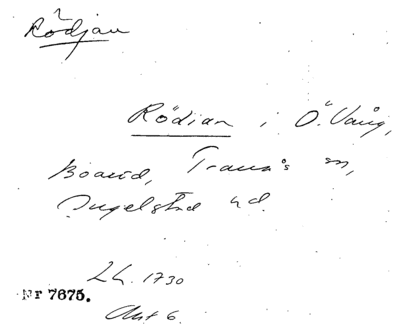 Rödjan
Rödian i Ö. Vång,
Boarid, Tranås sn,
Ingelstad hd.
LL. 1730
Nr 7675.
Akt 6